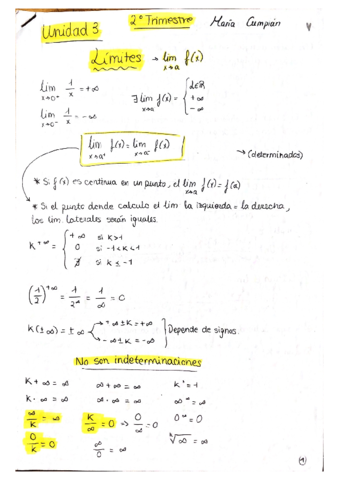 Unidad 3
2º Trimestre
María Campián
Límites → lim f(x)
x→a
lim 1/x = +∞
x→0⁺
lim 1/x = -∞
x→0⁻
∃ lim f(x) = { L∈ℝ
x→a
+∞
-∞
lim f(x) = lim f(x)
x→a⁺ x→a⁻
→ (determinados)
* Si f(x) es continua en un punto, el lim f(x) = f(a)
x→a
* Si el punto donde calculo el lim la izquierda = la derecha,
los lim laterales serán iguales.
K^+∞ = { +∞ si K>1
0 si -1<K<1
∄ si K ≤ -1
(1/2)^+∞ = 1/2^∞ = 1/∞ = 0
K(±∞) = ±∞
+∞±K = +∞
-∞±K = -∞
Depende de signos.
No son indeterminaciones
K + ∞ = ∞ ∞ + ∞ = ∞ K° = 1
K · ∞ = ∞ ∞ · ∞ = ∞ ∞^∞ = ∞
∞/K = ∞ K/∞ = 0 ⇒ 0/∞ = 0 0^∞ = 0
0/K = 0 ∞/0 = ∞ ᴷ√∞ = ∞
(1)